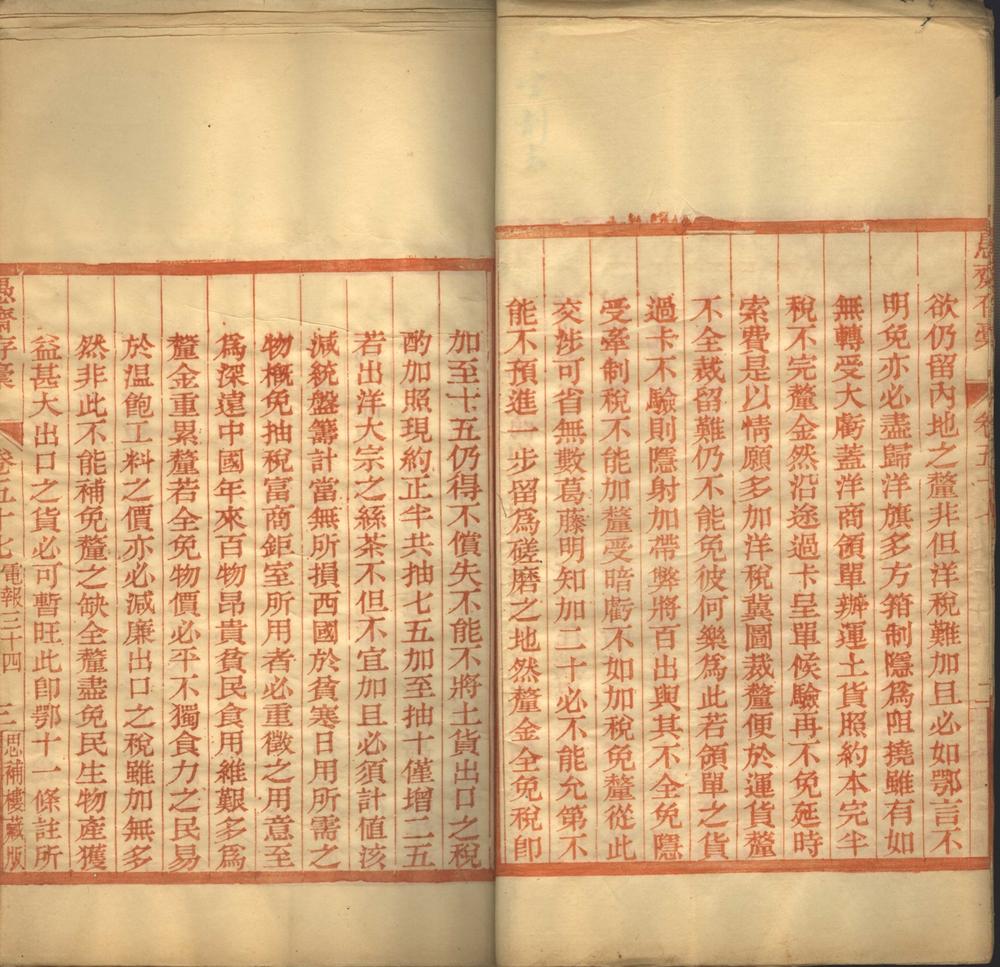 欲仍留內地之釐非但洋稅難加且必如鄂言不
明免亦必盡歸洋旗多方箝制隱為阻撓雖有如
無轉受大虧蓋洋商領單辦運土貨照約本完半
稅不完釐金然沿途過卡呈單候驗再不免延時
索費是以情願多加洋稅冀圖裁釐便於運貨釐
不全裁留難仍不能免彼何樂為此若領單之貨
過卡不驗則隱射加帶弊將百出與其不全免隱
受牽制稅不能加釐受暗虧不如加稅免釐從此
交涉可省無數葛藤明知加二十必不能允第不
能不預進一步留為磋磨之地然釐金全免稅即
加至十五仍得不償失不能不將土貨出口之稅
酌加照現約正半共抽七五加至抽十僅增二五
若出洋大宗之絲茶不但不宜加且必須計值該
減統盤籌計當無所損西國於貧寒日用所需之
物概免抽稅富商鉅室所用者必重徵之用意至
為深遠中國年來百物昂貴貧民食用維艱多為
釐金重累釐若全免物價必平不獨食力之民易
於溫飽工料之價亦必減廉出口之稅雖加無多
然非此不能補免釐之缺全釐盡免民生物產獲
益甚大出口之貨必可暫旺此即鄂十一條註所
愚齋存稾 卷五十七 電報三十四 三 思補樓藏版